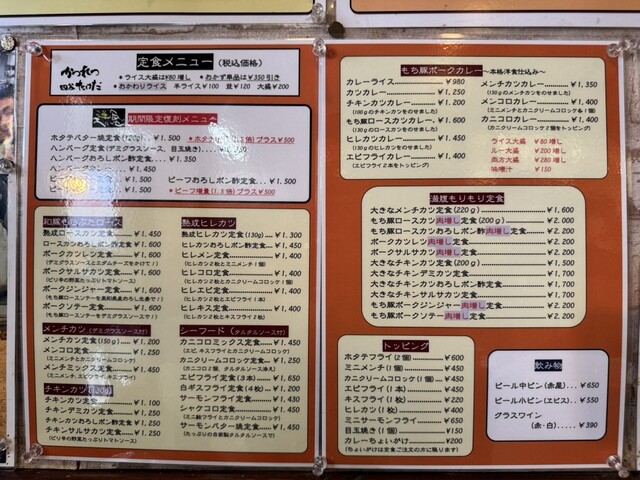 定食メニュー (税込価格)
かつれつ
四谷たけだ
＊ライス大盛は¥80増し ＊おかず単品は¥350引き
＊おかわりライス 半ライス¥100 並¥120 大盛¥200
期間限定復刻メニュー
ホタテバター焼定食(120g)…¥1,500
ハンバーグ定食(デミグラスソース、目玉焼)
ハンバーグおろしポン酢定食…¥1,350
¥1,450
¥1,500 ビーフおろしポン酢定食…¥1,500
¥1,500 ＊ビーフ増量(1.5倍)プラス¥500
和豚もちぶたロース
熟成ロースカツ定食…¥1,450
ロースカツおろしポン酢定食…¥1,600
ポークカツレツ定食…¥1,600
(デミグラスソースとエダムチーズをかけて!)
ポークサルサカツ定食…¥1,600
(ピリ辛の野菜たっぷりトマトソース)
ポークジンジャー定食…¥1,600
ポークソテー定食…¥1,600
メンチカツ (デミグラスソース付)
メンチカツ定食(150g)…¥1,200
メンコロ定食…¥1,250
(ミニメンチとカニクリームコロッケ)
メンチミックス定食…¥1,450
チキンカツ (130g)
チキンカツ定食…¥1,100
チキンデミカツ定食…¥1,250
チキンカツおろしポン酢定食…¥1,250
チキンサルサカツ定食…¥1,250
(ピリ辛の野菜たっぷりトマトソース)
熟成ヒレカツ
熟成ヒレカツ定食(130g)…¥1,300
ヒレカツおろしポン酢定食…¥1,450
ヒレメン定食…¥1,400
(ヒレカツ2枚とミニメンチ1個)
ヒレコロ定食…¥1,400
(ヒレカツ2枚とカニクリームコロッケ1個)
ヒレエビ定食…¥1,400
(ヒレカツ2枚とエビフライ1本)
ヒレキス定食…¥1,400
(ヒレカツ2枚とキスフライ2枚)
シーフード (タルタルソース付)
カニコロミックス定食…¥1,450
(エビ、キスフライとカニクリームコロッケ)
カニクリームコロッケ定食…¥1,250
(カニコロ2個、タルタルソース冷え)
エビフライ定食(3本)…¥1,650
白ギスフライ定食(4枚)…¥1,200
サーモンフライ定食…¥1,300
シャケコロ定食…¥1,450
(ミニ鮭フライとカニクリームコロッケ)
サーモンバター焼定食…¥1,500
(たっぷりの自家製タルタルソースで)
もち豚ポークカレー ～本格洋食仕込み～
カレーライス…¥980
カツカレー…¥1,250
チキンカツカレー…¥1,200
(100gのチキンカツをのせました)
もち豚ロースカツカレー…¥1,600
(130gのロースカツをのせました)
ヒレカツカレー…¥1,450
(130gのヒレカツをのせました)
エビフライカレー…¥1,400
(エビフライ2本をトッピング)
メンチカツカレー…¥1,350
(130gのメンチカツをのせました)
メンコロカレー…¥1,400
(ミニメンチとカニクリームコロッケ各1個)
カニコロカレー…¥1,400
(カニクリームコロッケ2個をトッピング)
ライス大盛 ¥80増し
ルー大盛 ¥200増し
両方大盛 ¥280増し
味噌汁 ¥150
満腹もりもり定食
大きなメンチカツ定食(220g)…¥1,600
もち豚ロースカツ肉増し定食(200g)…¥2,000
もち豚ロースカツおろしポン酢肉増し定食(200g)…¥2,200
ポークカツレツ肉増し定食…¥2,200
ポークサルサカツ肉増し定食…¥2,200
大きなチキンカツ定食(200g)…¥1,500
大きなチキンデミカツ定食…¥1,700
大きなチキンカツおろしポン酢定食…¥1,700
大きなチキンサルサカツ定食…¥1,700
もち豚ポークジンジャー肉増し定食…¥2,200
もち豚ポークソテー肉増し定食…¥2,200
トッピング
ホタテフライ(2個)…¥600
ミニメンチ(1個)…¥450
カニクリームコロッケ(1個)…¥450
エビフライ(1本)…¥450
キスフライ(1枚)…¥220
ヒレカツ(1枚)…¥400
ミニサーモンフライ…¥650
目玉焼き(1個)…¥150
カレーちょいがけ…¥200
(ちょいがけは定食ご注文の方に限ります)
飲み物
ビール中ビン(赤星)…¥650
ビール小ビン(ヱビス)…¥550
グラスワイン
(赤・白)…¥390